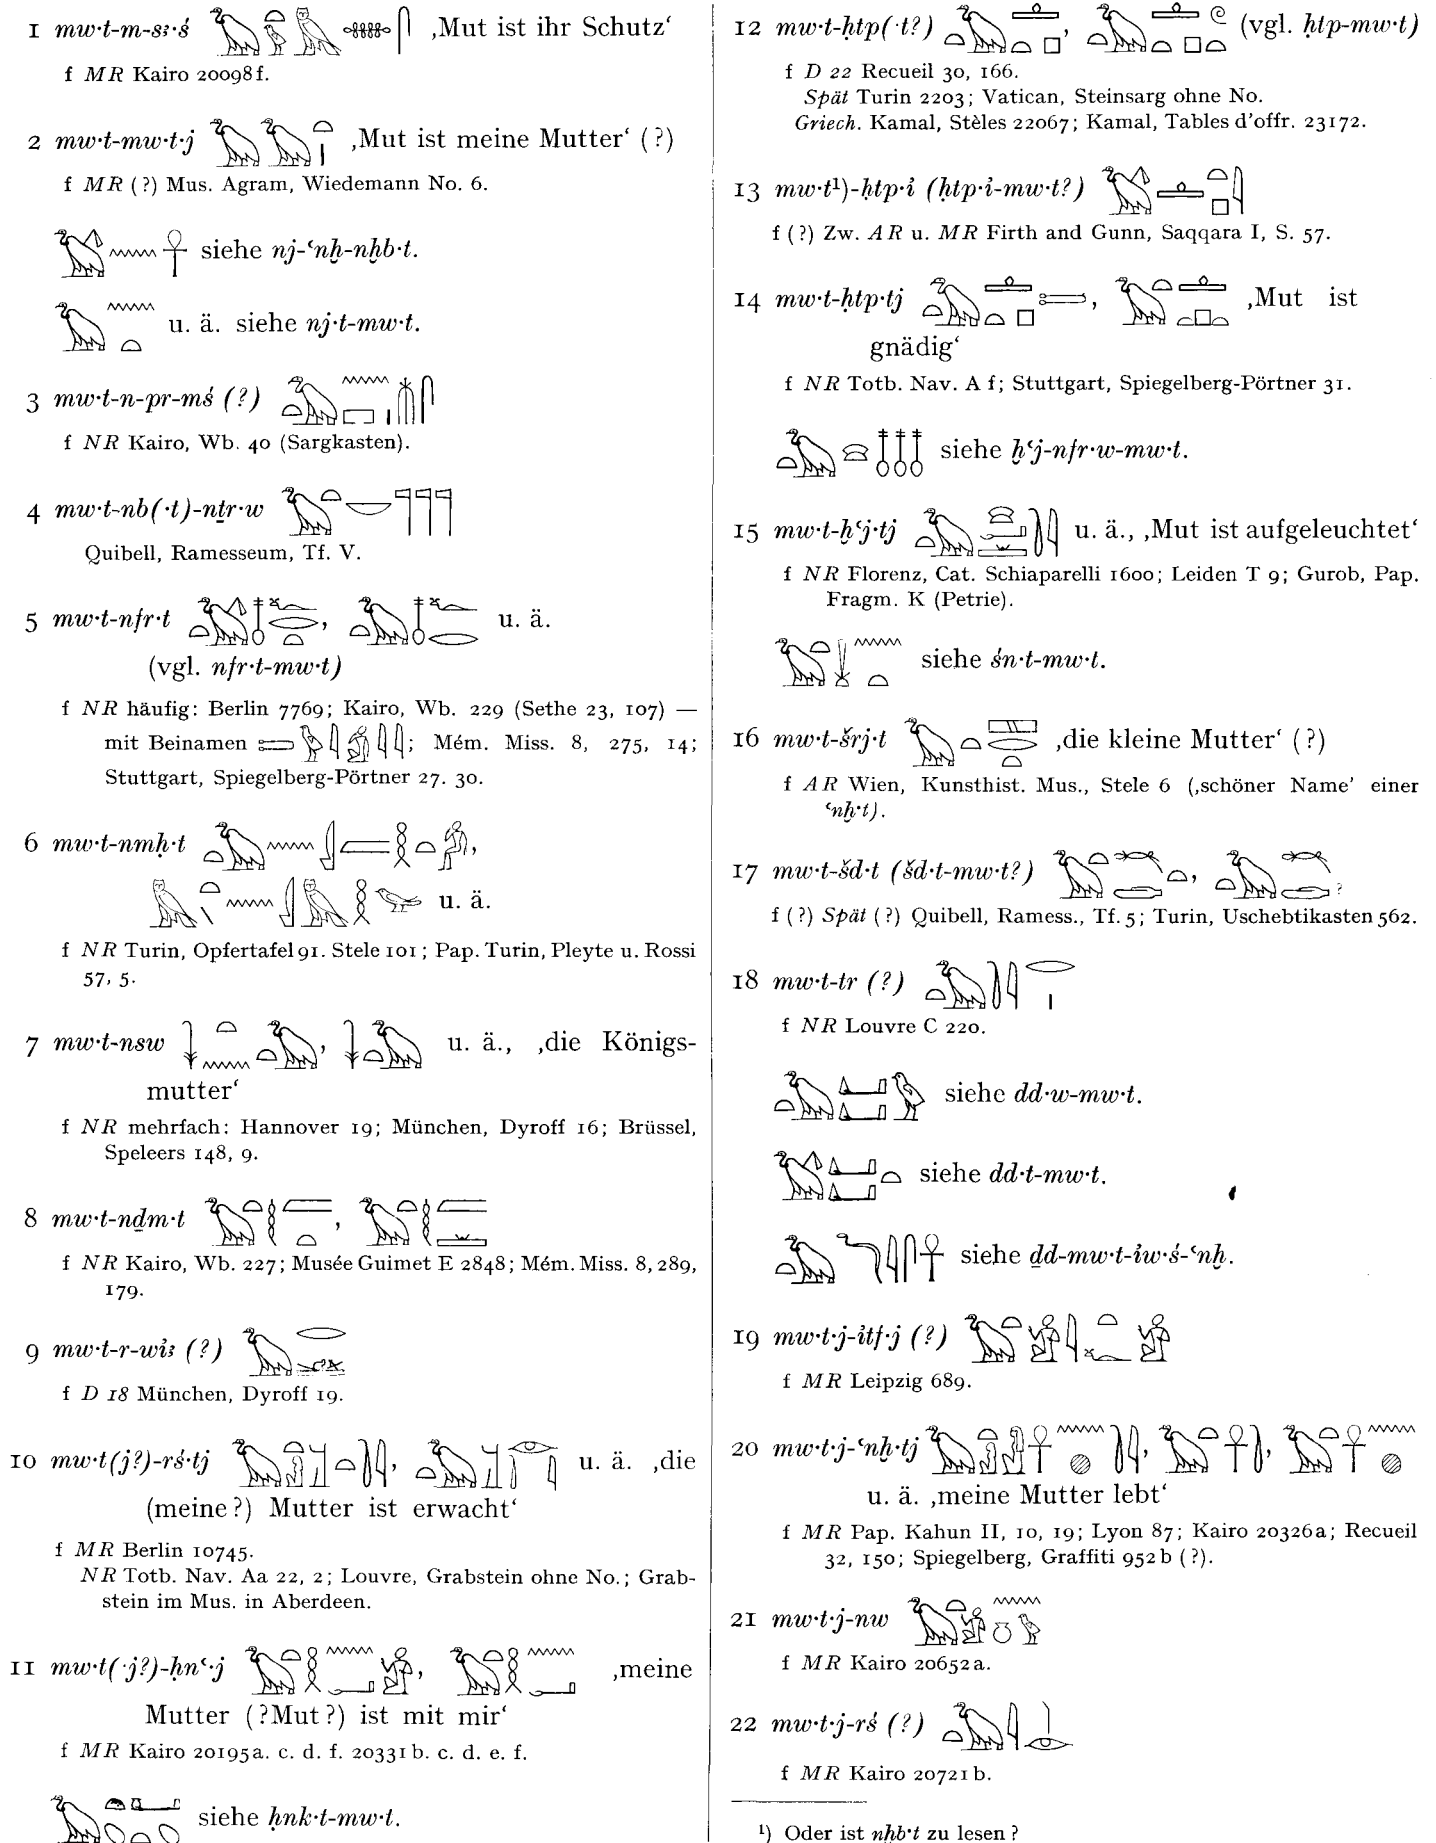 1 mw·t-m-sꜣ·ś ‚Mut ist ihr Schutz‘
f MR Kairo 20098f.
2 mw·t-mw·t·j ‚Mut ist meine Mutter‘ (?)
f MR (?) Mus. Agram, Wiedemann No. 6.
siehe nj-ꜥnḫ-nḫb·t.
u. ä. siehe nj·t-mw·t.
3 mw·t-n-pr-mś (?)
f NR Kairo, Wb. 40 (Sargkasten).
4 mw·t-nb(·t)-nṯr·w
Quibell, Ramesseum, Tf. V.
5 mw·t-nfr·t , u. ä.
(vgl. nfr·t-mw·t)
f NR häufig: Berlin 7769; Kairo, Wb. 229 (Sethe 23, 107) —
mit Beinamen ; Mém. Miss. 8, 275, 14;
Stuttgart, Spiegelberg-Pörtner 27. 30.
6 mw·t-nmḥ·t ,
u. ä.
f NR Turin, Opfertafel 91. Stele 101; Pap. Turin, Pleyte u. Rossi
57, 5.
7 mw·t-nsw , u. ä., ‚die Königs-
mutter‘
f NR mehrfach: Hannover 19; München, Dyroff 16; Brüssel,
Speleers 148, 9.
8 mw·t-nḏm·t ,
f NR Kairo, Wb. 227; Musée Guimet E 2848; Mém. Miss. 8, 289,
179.
9 mw·t-r-wꞽꜣ (?)
f D 18 München, Dyroff 19.
10 mw·t(j?)-rś·tj , u. ä. ‚die
(meine?) Mutter ist erwacht‘
f MR Berlin 10745.
NR Totb. Nav. Aa 22, 2; Louvre, Grabstein ohne No.; Grab-
stein im Mus. in Aberdeen.
11 mw·t(·j?)-ḥnꜥ·j , ‚meine
Mutter (?Mut?) ist mit mir‘
f MR Kairo 20195a. c. d. f. 20331b. c. d. e. f.
siehe ḥnk·t-mw·t.
12 mw·t-ḥtp(·t?) , (vgl. ḥtp-mw·t)
f D 22 Recueil 30, 166.
Spät Turin 2203; Vatican, Steinsarg ohne No.
Griech. Kamal, Stèles 22067; Kamal, Tables d'offr. 23172.
13 mw·t¹)-ḥtp·ꞽ (ḥtp·ꞽ-mw·t?)
f (?) Zw. AR u. MR Firth and Gunn, Saqqara I, S. 57.
14 mw·t-ḥtp·tj , ‚Mut ist
gnädig‘
f NR Totb. Nav. A f; Stuttgart, Spiegelberg-Pörtner 31.
siehe ḫꜥj-nfr·w-mw·t.
15 mw·t-ḫꜥj·tj u. ä., ‚Mut ist aufgeleuchtet‘
f NR Florenz, Cat. Schiaparelli 1600; Leiden T 9; Gurob, Pap.
Fragm. K (Petrie).
siehe śn·t-mw·t.
16 mw·t-šrj·t ‚die kleine Mutter‘ (?)
f AR Wien, Kunsthist. Mus., Stele 6 (‚schöner Name’ einer
ꜥnḫ·t).
17 mw·t-šd·t (šd·t-mw·t?) , ?
f (?) Spät (?) Quibell, Ramess., Tf. 5; Turin, Uschebtikasten 562.
18 mw·t-tr (?)
f NR Louvre C 220.
siehe dd·w-mw·t.
siehe dd·t-mw·t.
siehe ḏd-mw·t-ꞽw·ś-ꜥnḫ.
19 mw·t·j-ꞽtf·j (?)
f MR Leipzig 689.
20 mw·t·j-ꜥnḫ·tj , ,
u. ä. ‚meine Mutter lebt‘
f MR Pap. Kahun II, 10, 19; Lyon 87; Kairo 20326a; Recueil
32, 150; Spiegelberg, Graffiti 952b (?).
21 mw·t·j-nw
f MR Kairo 20652a.
22 mw·t·j-rś (?)
f MR Kairo 20721b.
¹) Oder ist nḫb·t zu lesen?